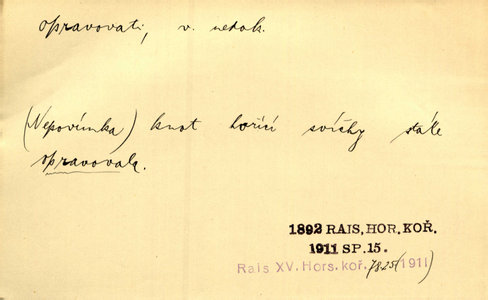 opravovati, v. nedok.
(Nepovímka) knot hořící svíčky stále
opravovala.
1892 RAIS, HOR. KOŘ.
1911 SP. 15.
Rais XV. Hors. koř. (1911)